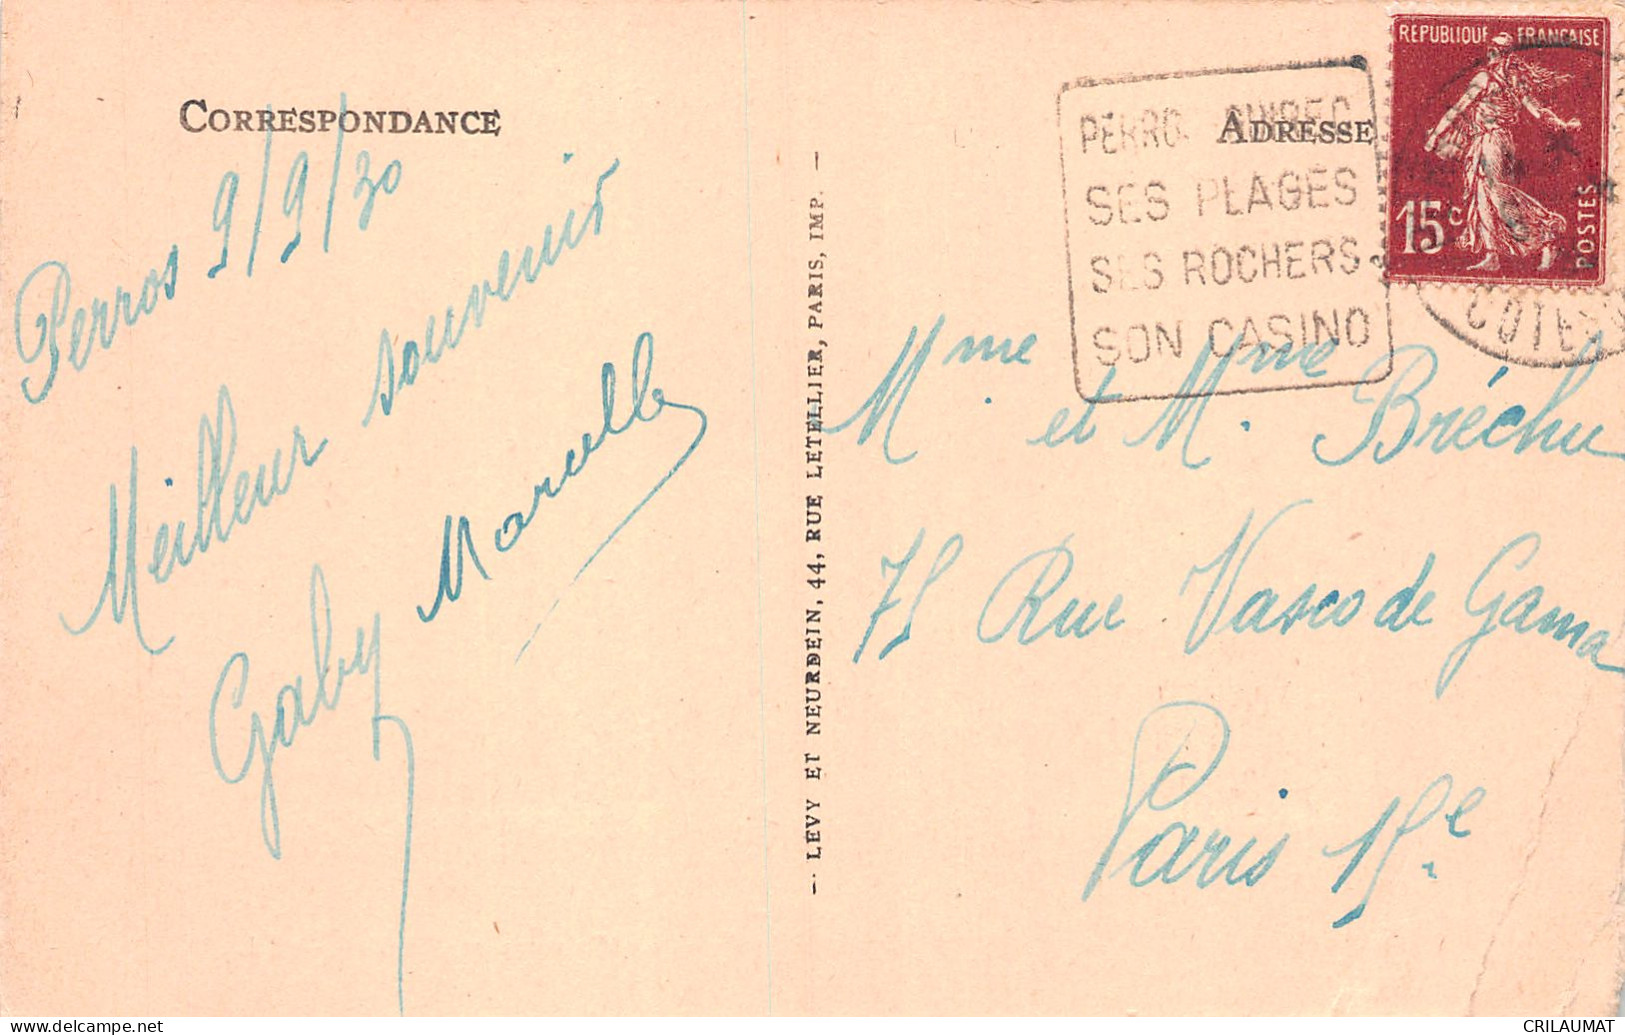 CORRESPONDANCE
Perros 9/9/30
Meilleur souvenir
Gaby Marcelle
— LEVY ET NEURDEIN, 44, RUE LETELLIER, PARIS, IMP. —
ADRESSE
SES PLAGES
SES ROCHERS
SON CASINO
REPUBLIQUE FRANÇAISE
15c
POSTES
Mme et Mme Bréchu
75 Rue Vasco de Gama
Paris 15e
CRILAUMAT